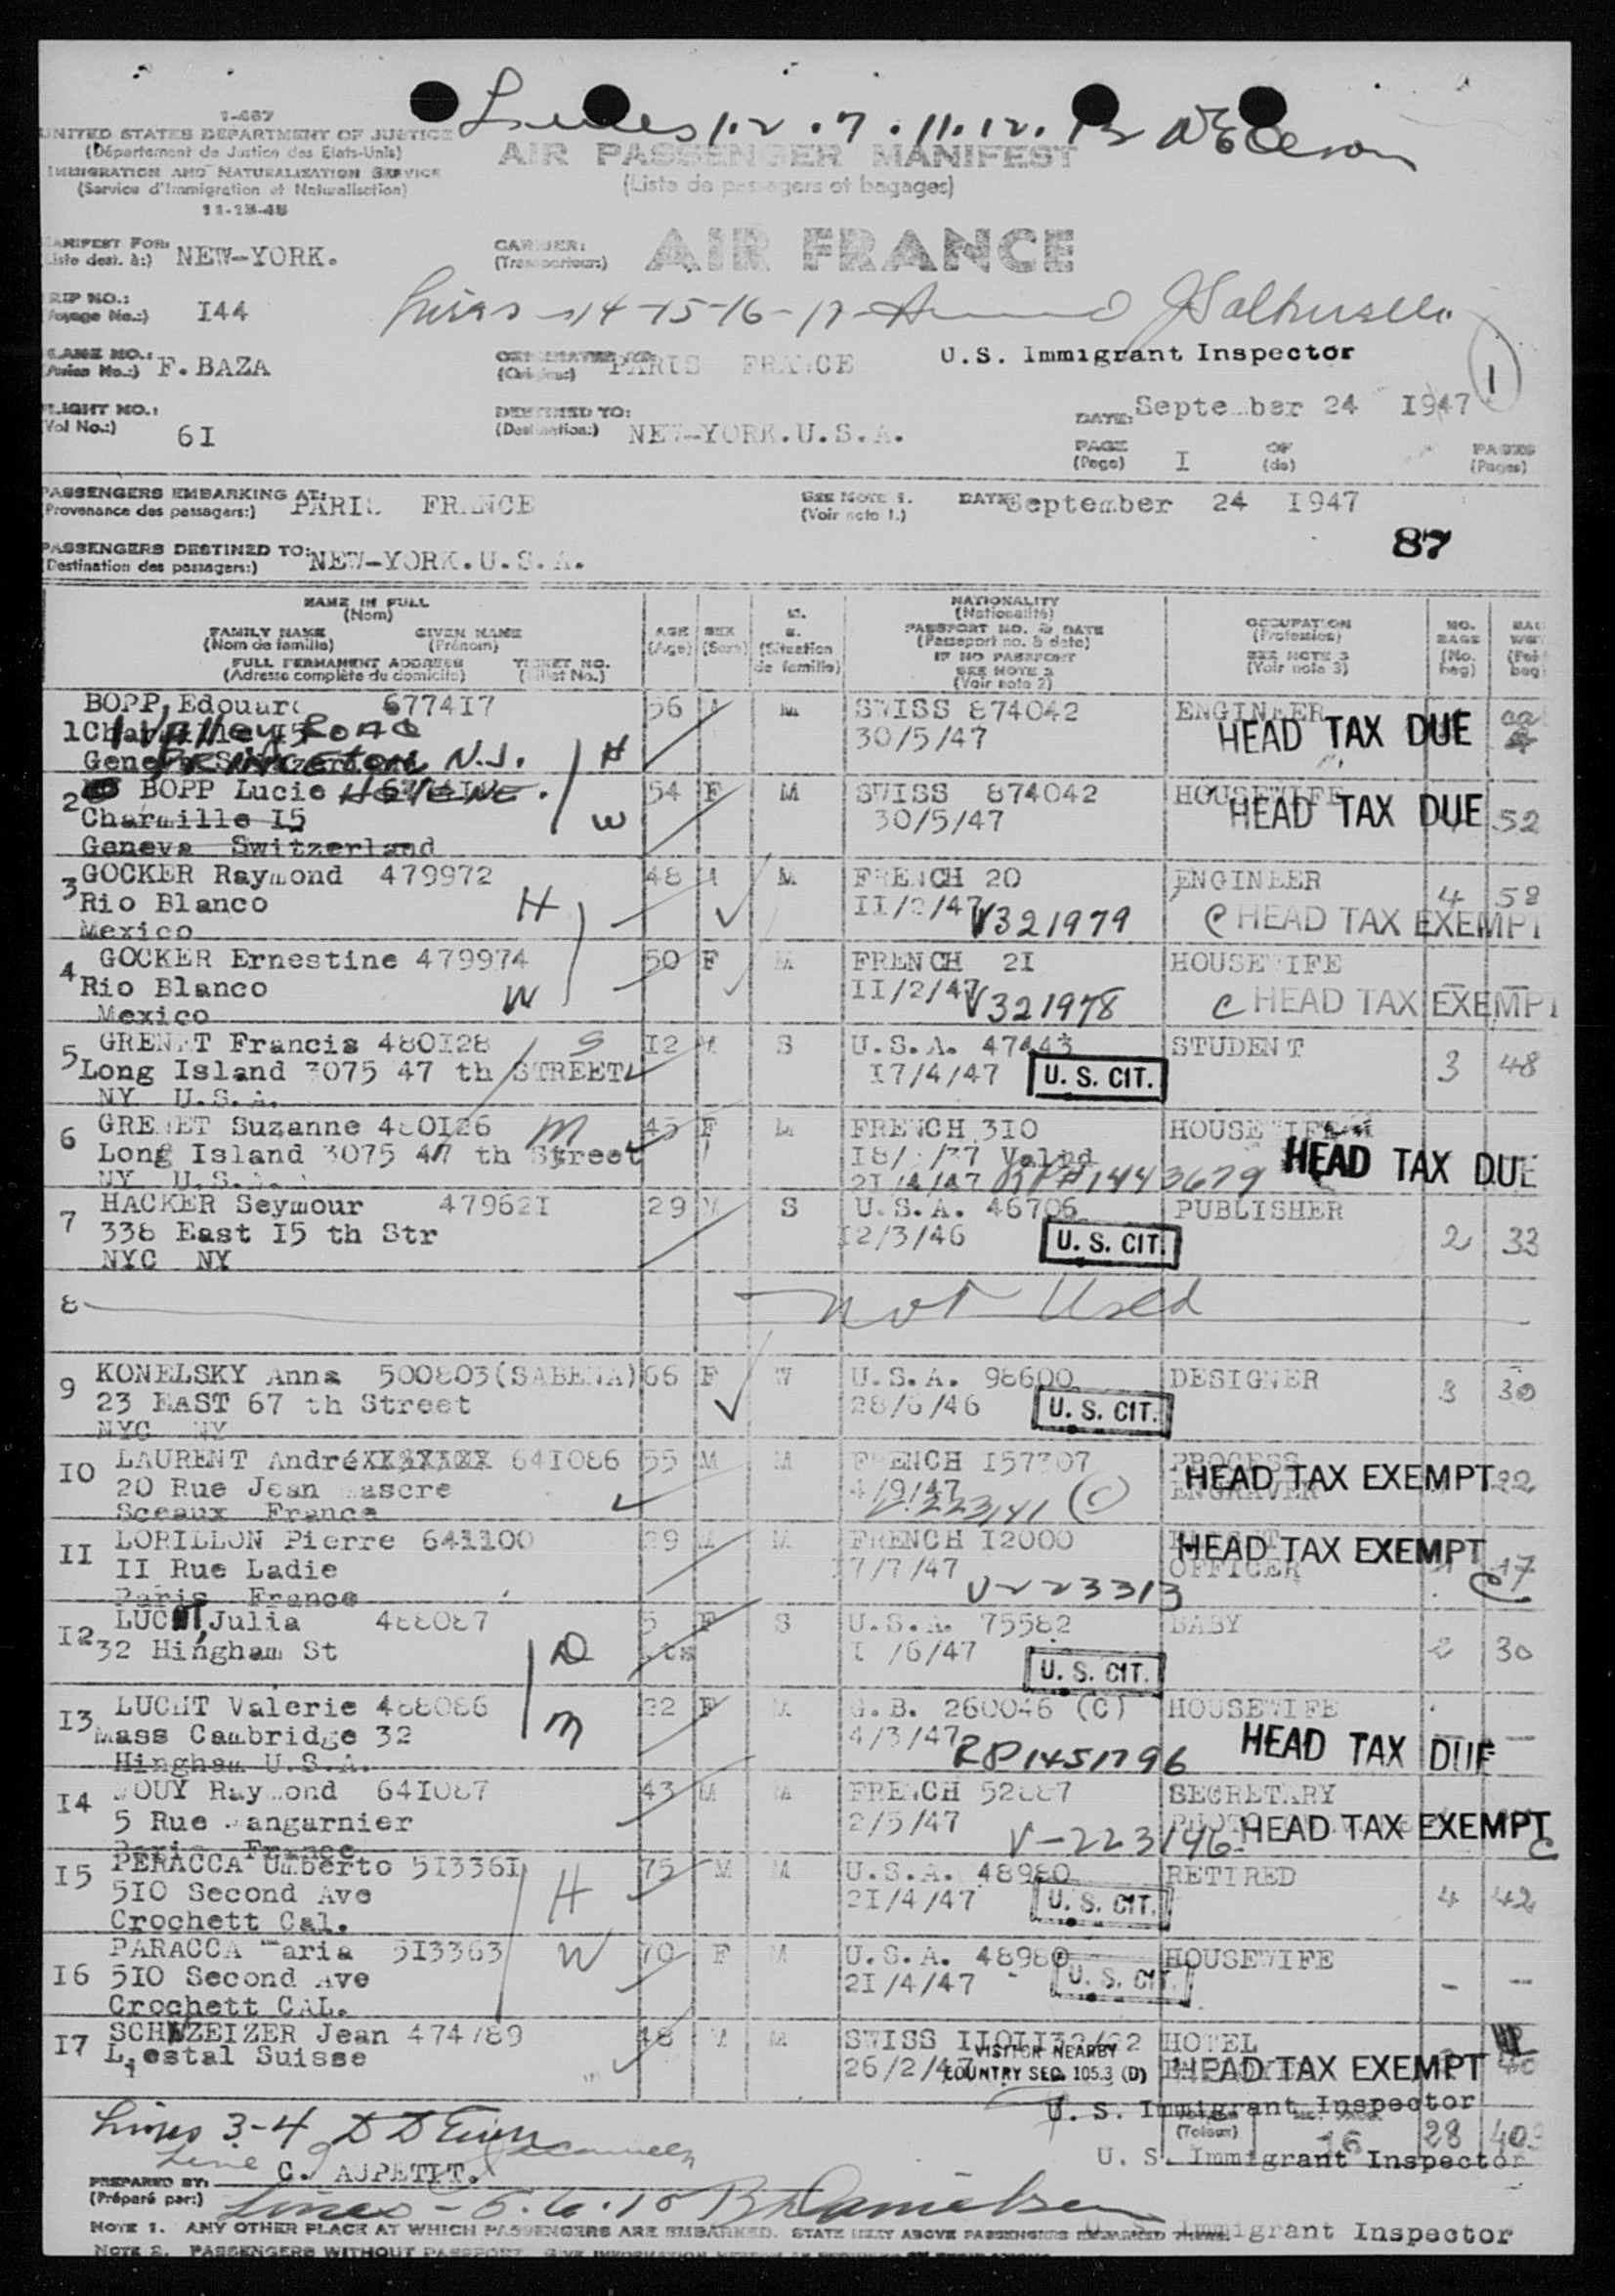 1-467
UNITED STATES DEPARTMENT OF JUSTICE
(Département de Justice des Etats-Unis)
IMMIGRATION AND NATURALIZATION SERVICE
(Service d'Immigration et Naturalisation)
11-15-45
Lines 1. 2 . 7 . 11. 12. 13
AIR PASSENGER MANIFEST
(Liste de passagers et bagages)
MANIFEST FOR: NEW-YORK.
(Liste dest. à:)
CARRIER: AIR FRANCE
(Transporteur:)
TRIP NO.: I44
(Voyage No.:)
14-15-16-17
U.S. Immigrant Inspector
1
PLANE NO.: F.BAZA
(Avion No.:)
PARIS FRANCE
(Origine:)
FLIGHT NO.: 6I
(Vol No.:)
DESTINED TO: NEW-YORK.U.S.A.
(Destination:)
DATE: September 24 I947
PAGE I OF PAGES
(Page) (de) (Pages)
PASSENGERS EMBARKING AT: PARIS FRANCE
(Provenance des passagers:)
SEE NOTE 1.
(Voir note 1.)
DATE September 24 I947
87
PASSENGERS DESTINED TO: NEW-YORK.U.S.A.
(Destination des passagers:)
NAME IN FULL
(Nom)
FAMILY NAME GIVEN NAME
(Nom de famille) (Prénom)
FULL PERMANENT ADDRESS TICKET NO.
(Adresse complète du domicile) (Billet No.)
AGE
(Age)
SEX
(Sexe)
(Situation
de famille)
NATIONALITY
(Nationalité)
PASSPORT NO. & DATE
(Passeport no. & date)
IF NO PASSPORT
SEE NOTE 2
(Voir note 2)
OCCUPATION
(Profession)
SEE NOTE 3
(Voir note 3)
NO.
BAGS
(No.
bag)
BOPP, Edouard 677417 56 M SWISS 874042 ENGINEER
1 Valley Road 30/5/47 HEAD TAX DUE
PRINCETON N.J. H
2 BOPP Lucie HELENE. 54 F M SWISS 874042 HOUSEWIFE
Charmille I5 W 30/5/47 HEAD TAX DUE 52
Geneva Switzerland
3 GOCKER Raymond 479972 48 M M FRENCH 20 ENGINEER
Rio Blanco H II/2/47 V321979 4 58
Mexico C HEAD TAX EXEMPT
4 GOCKER Ernestine 479974 50 F M FRENCH 2I HOUSEWIFE
Rio Blanco W II/2/47 V321978
Mexico C HEAD TAX EXEMPT
5 GRENET Francis 480I28 S I2 M S U.S.A. 47443 STUDENT
Long Island 3075 47 th STREET I7/4/47 U. S. CIT. 3 48
NY U.S.A.
6 GRENET Suzanne 480I26 M 45 F M FRENCH 3IO HOUSEWIFE
Long Island 3075 47 th Street Valid HEAD TAX DUE
NY U.S.A. 2I/4/47 RP#1443679
7 HACKER Seymour 47962I 29 M S U.S.A. 46706 PUBLISHER
338 East I5 th Str I2/3/46 U. S. CIT. 2 33
NYC NY
8 Not Used
9 KONELSKY Anna 500803(SABENA) 66 F W U.S.A. 98600 DESIGNER
23 EAST 67 th Street 28/6/46 U. S. CIT. 3 30
NYC NY
IO LAURENT André 64I086 55 M M FRENCH I57307 PROCESS
20 Rue Jean 4/9/47 ENGRAVER HEAD TAX EXEMPT 22
Sceaux France V.223141 (C)
II LORILLON Pierre 641100 29 M M FRENCH I2000
II Rue Ladie 7/7/47 OFFICER HEAD TAX EXEMPT 17
Paris France V-223313 C
I2 LUCHT, Julia 488087 5 F S U.S.A. 75582 BABY
32 Hingham St D /6/47 U. S. CIT. 2 30
I3 LUCHT Valerie 488086 22 F M G.B. 260046 (C) HOUSEWIFE
Mass Cambridge 32 M 4/3/47 HEAD TAX DUE
Hingham U.S.A. RP1451796
I4 JOUY Raymond 64I087 43 M M FRENCH 52887 SECRETARY
5 Rue 2/5/47 HEAD TAX EXEMPT
Paris France V-223146 C
I5 PERACCA Umberto 5I336I 75 M M U.S.A. 48980 RETIRED
5IO Second Ave H 2I/4/47 U. S. CIT. 4 42
Crochett Cal.
I6 PARACCA Maria 5I3363 W 70 F M U.S.A. 48980 HOUSEWIFE
5IO Second Ave 2I/4/47 U. S. CIT.
Crochett CAL.
I7 SCHWZEIZER Jean 474789 48 M M SWISS HOTEL
Liestal Suisse 26/2/47 HEAD TAX EXEMPT 40
VISITOR NEARBY
COUNTRY SEC. 105.3 (D)
U. S. Immigrant Inspector
Lines 3-4
16 28 403
Line
U. S. Immigrant Inspector
PREPARED BY: C. AUPETIT.
(Préparé par:)
Lines - 5. 6. 10
U. S. Immigrant Inspector
NOTE 1. ANY OTHER PLACE AT WHICH PASSENGERS ARE EMBARKED. STATE NEXT ABOVE PASSENGERS EMBARKED THERE.
NOTE 2. PASSENGERS WITHOUT PASSPORT